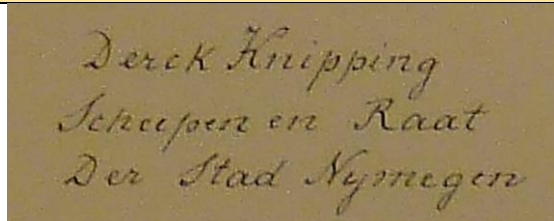 Derck Knipping
Scheepen en Raat
Der Stad Nymegen